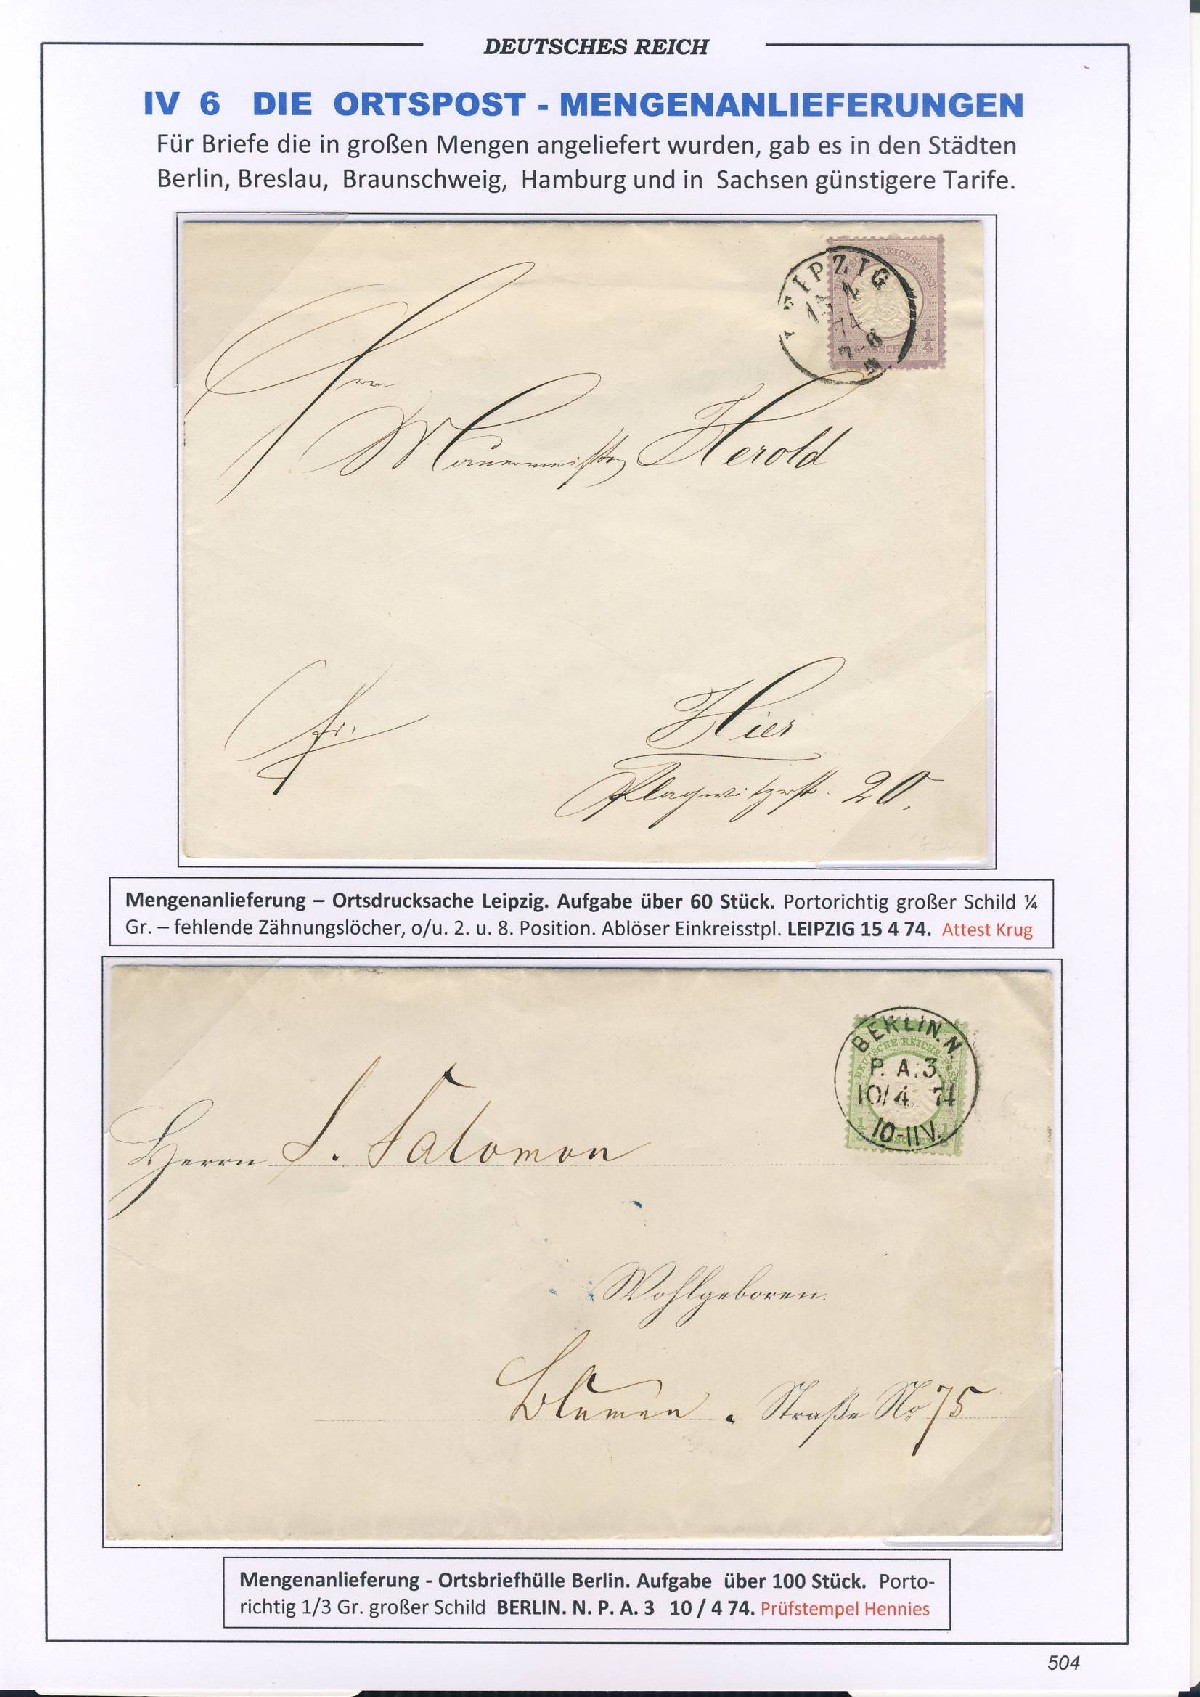 DEUTSCHES REICH
IV 6 DIE ORTSPOST - MENGENANLIEFERUNGEN
Für Briefe die in großen Mengen angeliefert wurden, gab es in den Städten
Berlin, Breslau, Braunschweig, Hamburg und in Sachsen günstigere Tarife.
LEIPZIG
74
1/4
Mauermeister Herold
Hier
Plagwitzerstr. 20.
Mengenanlieferung – Ortsdrucksache Leipzig. Aufgabe über 60 Stück. Portorichtig großer Schild ¼
Gr. – fehlende Zähnungslöcher, o/u. 2. u. 8. Position. Ablöser Einkreisstpl. LEIPZIG 15 4 74. Attest Krug
BERLIN. N.
P. A. 3
10/4 74
10-11V.
Herrn S. Salomon
Wohlgeboren.
Blumen . Straße No 75
Mengenanlieferung - Ortsbriefhülle Berlin. Aufgabe über 100 Stück. Porto-
richtig 1/3 Gr. großer Schild BERLIN. N. P. A. 3 10 / 4 74. Prüfstempel Hennies
504